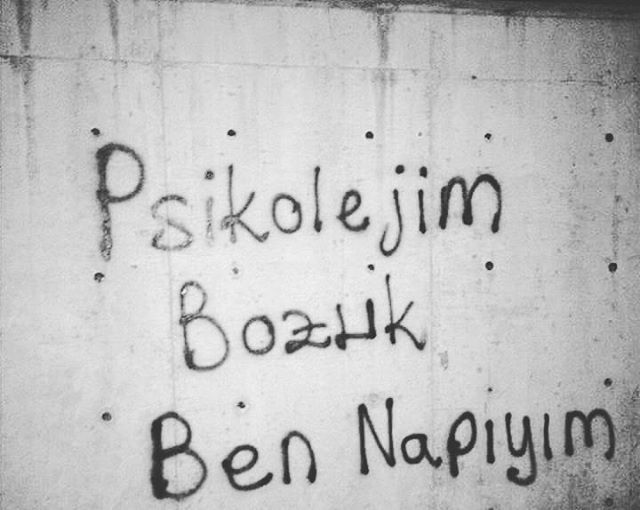 Psikolejim
Bozuk
Ben Napıyım